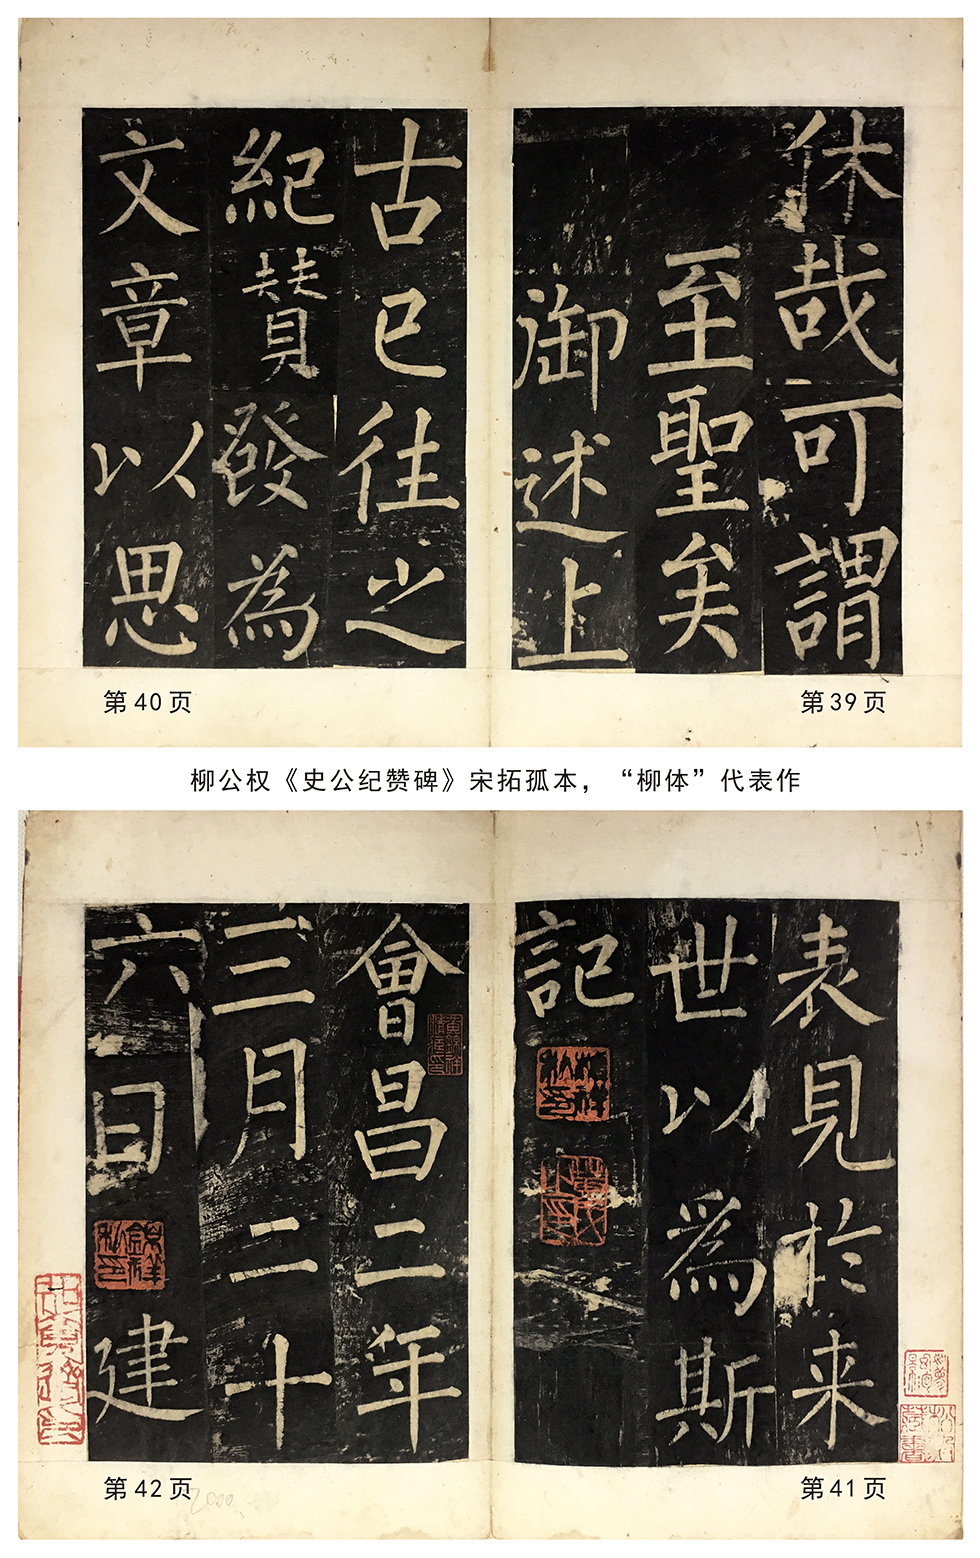 休哉可謂
至聖矣
御述上
第39页
古已往之
紀贊發為
文章以思
第40页
柳公权《史公纪赞碑》宋拓孤本，“柳体”代表作
表見於来
世以為斯
記
第41页
會昌二年
三月二十
六日建
第42页
2000